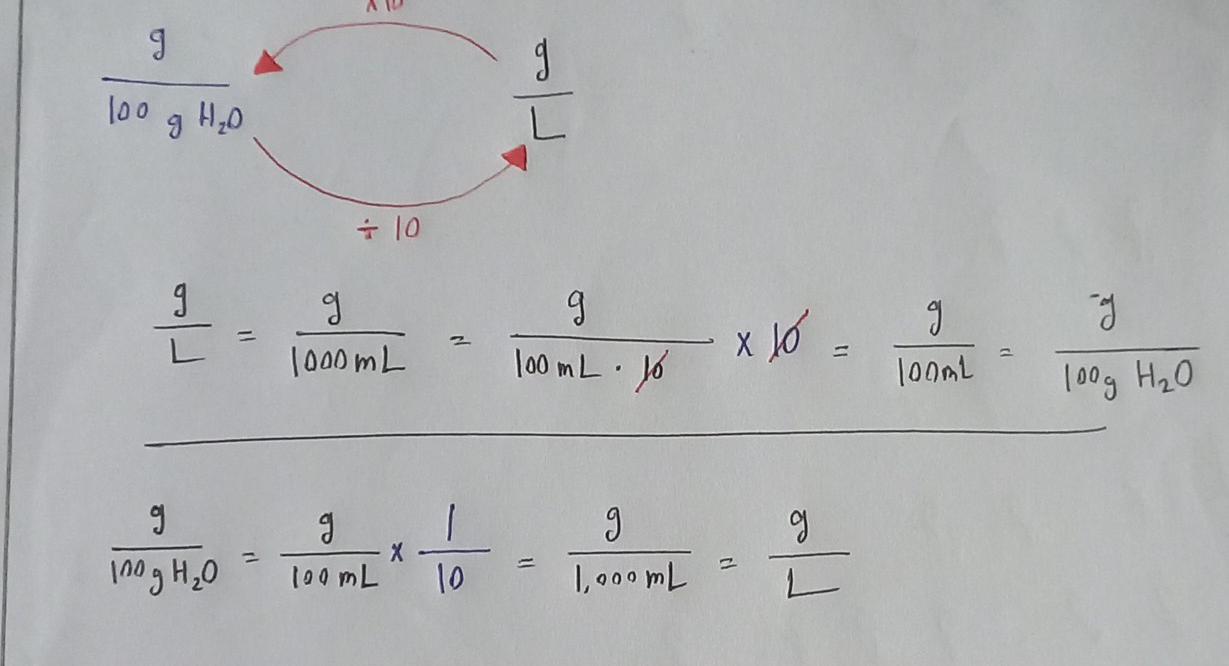 x 10
g / 100 g H₂O g / L
÷ 10
g / L = g / 1000 mL = g / 100 mL · 10 x 10 = g / 100 mL = g / 100g H₂O
g / 100g H₂O = g / 100 mL x 1 / 10 = g / 1,000 mL = g / L